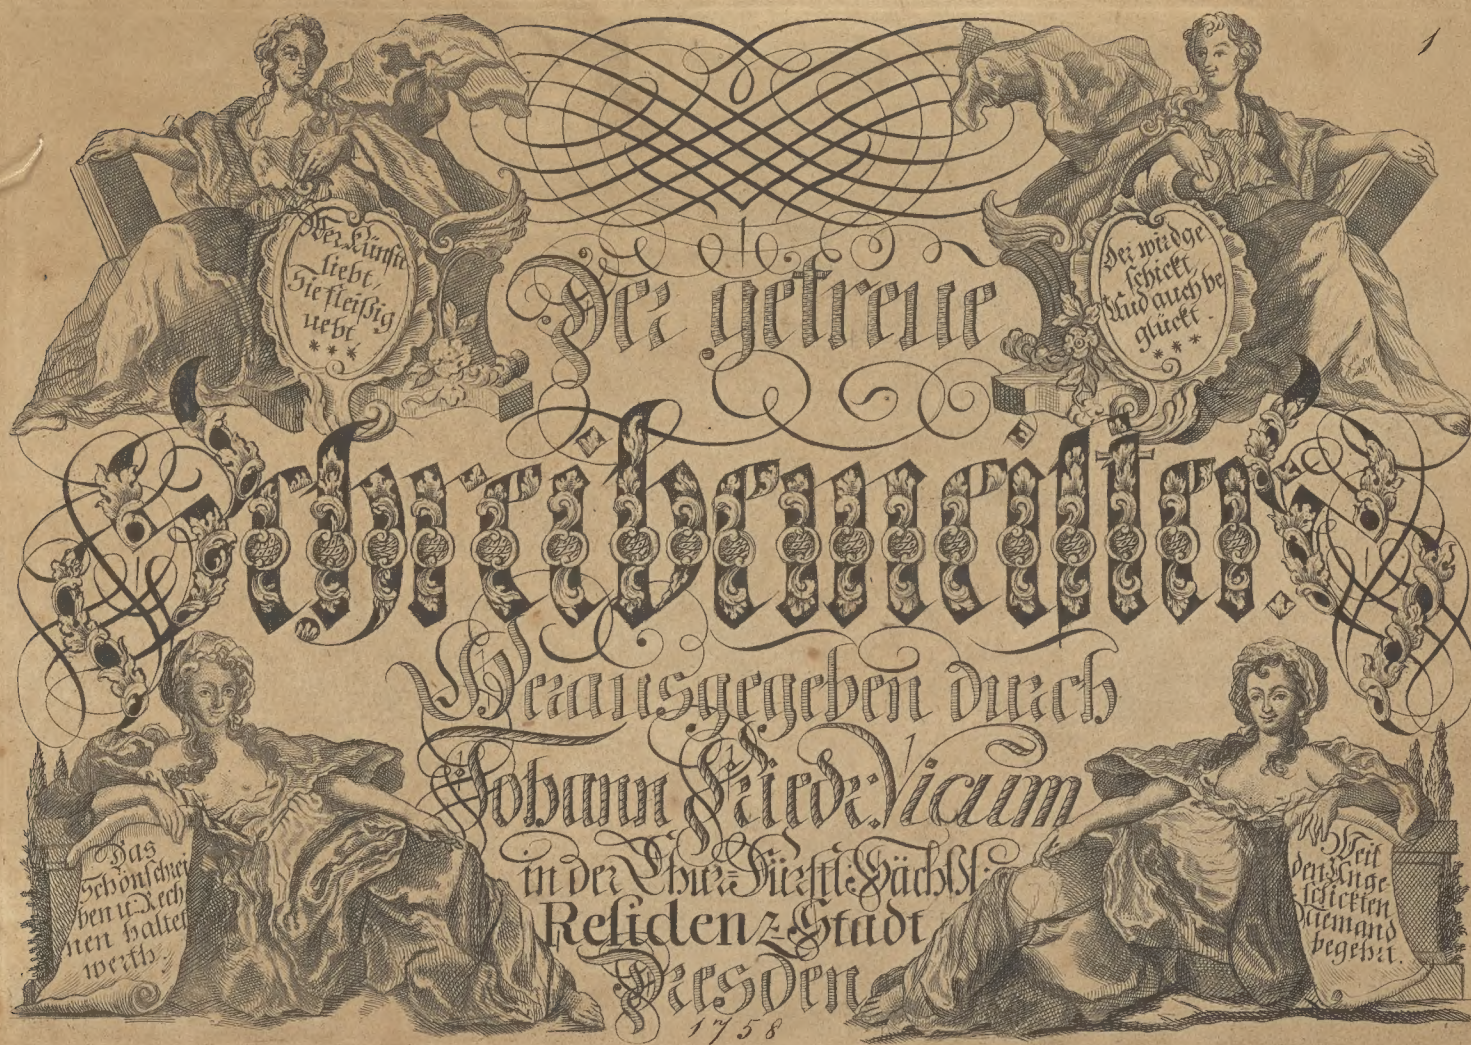 1
Wer Künste
liebt,
Sie fleißig
uebt,
Der wird ge
schickt,
Und auch be
glückt.
Der getreue
Schreibemeister
Herausgegeben durch
Johann Friedr. Vicum
in der Chur-Fürstl: Sächßl:
Residenz-Stadt
Dresden
1758
Das
Schönschrei
ben u. Rech
nen haltet
werth.
Weil
den Unge-
schickten
Niemand
begehrt.